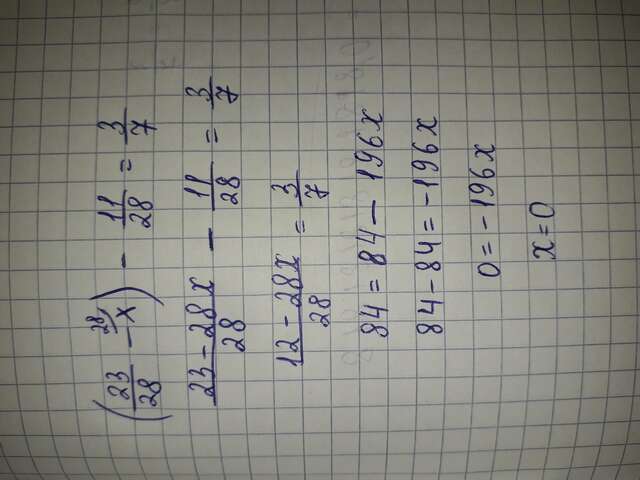 (23/28 - 28/x) - 11/28 = 3/7
23-28x/28 - 11/28 = 3/7
12-28x/28 = 3/7
84 = 84 - 196x
84-84 = -196x
0 = -196x
x = 0